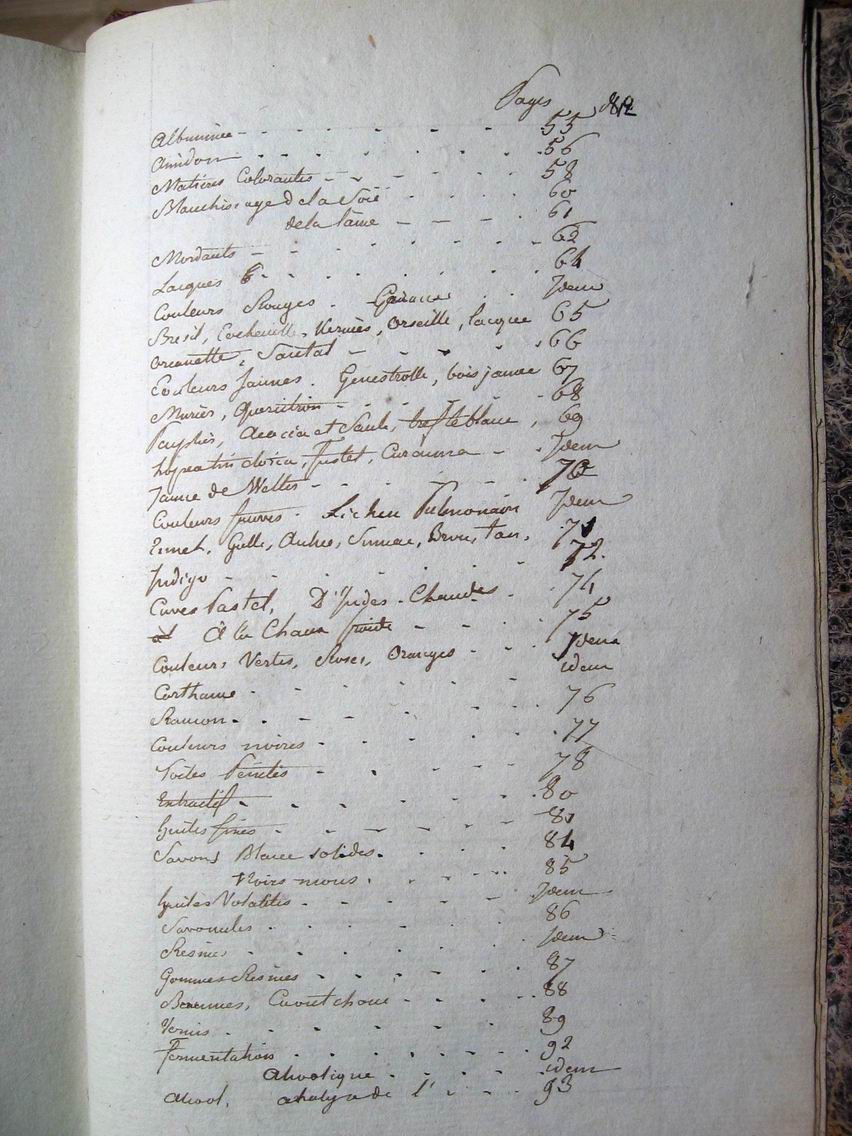 Pages
Albumine - - - - - - 55
Amidon - - - - - - 56
Matières Colorantes - - - - 58
Blanchissage de la Soie - - - 60
de la laine - - - - 61
Mordants - - - - - - 62
Lacques - - - - - - 64
Couleurs Rouges. Garance - - Idem
Bresil, Cochenille, Kermès, Orseille, lacque 65
Orcanette, Santal - - - - 66
Couleurs Jaunes. Genestrolle, bois jaune 67
Murier, Quercitron - - - - 68
Peuplier, Acacia et Saule, treffle blanc, 69
fustet, Curcuma - - Idem
Jaune de - - - - 70
Couleurs fauves. Lichen Pulmonaire Idem
Galle, Aulne, Sumac, Brou, tan, 71
Indigo - - - - - - 72.
Cuves Pastel, D'Indes. Chaudes - 74
A la Chaux froide - - - 75
Couleurs Vertes, Roses, Oranges - - Idem
Carthame - - - - - - idem
- - - - - - 76
Couleurs noires - - - - - 77
Toiles Peintes - - - - - 78
Extractif - - - - - - 80
huiles fines - - - - - - 81
Savons Blancs solides. - - - - 84
Noirs mous. - - - - 85
huiles Volatiles - - - - - Idem
Savonules - - - - - - 86
Resines - - - - - - Idem
Gommes Resines - - - - - 87
Baumes, Caoutchouc - - - - 88
Vernis - - - - - - 89
Fermentation - - - - - - 92
Alcoolique - - - - idem
Alcool, analyse de l' - - - 93